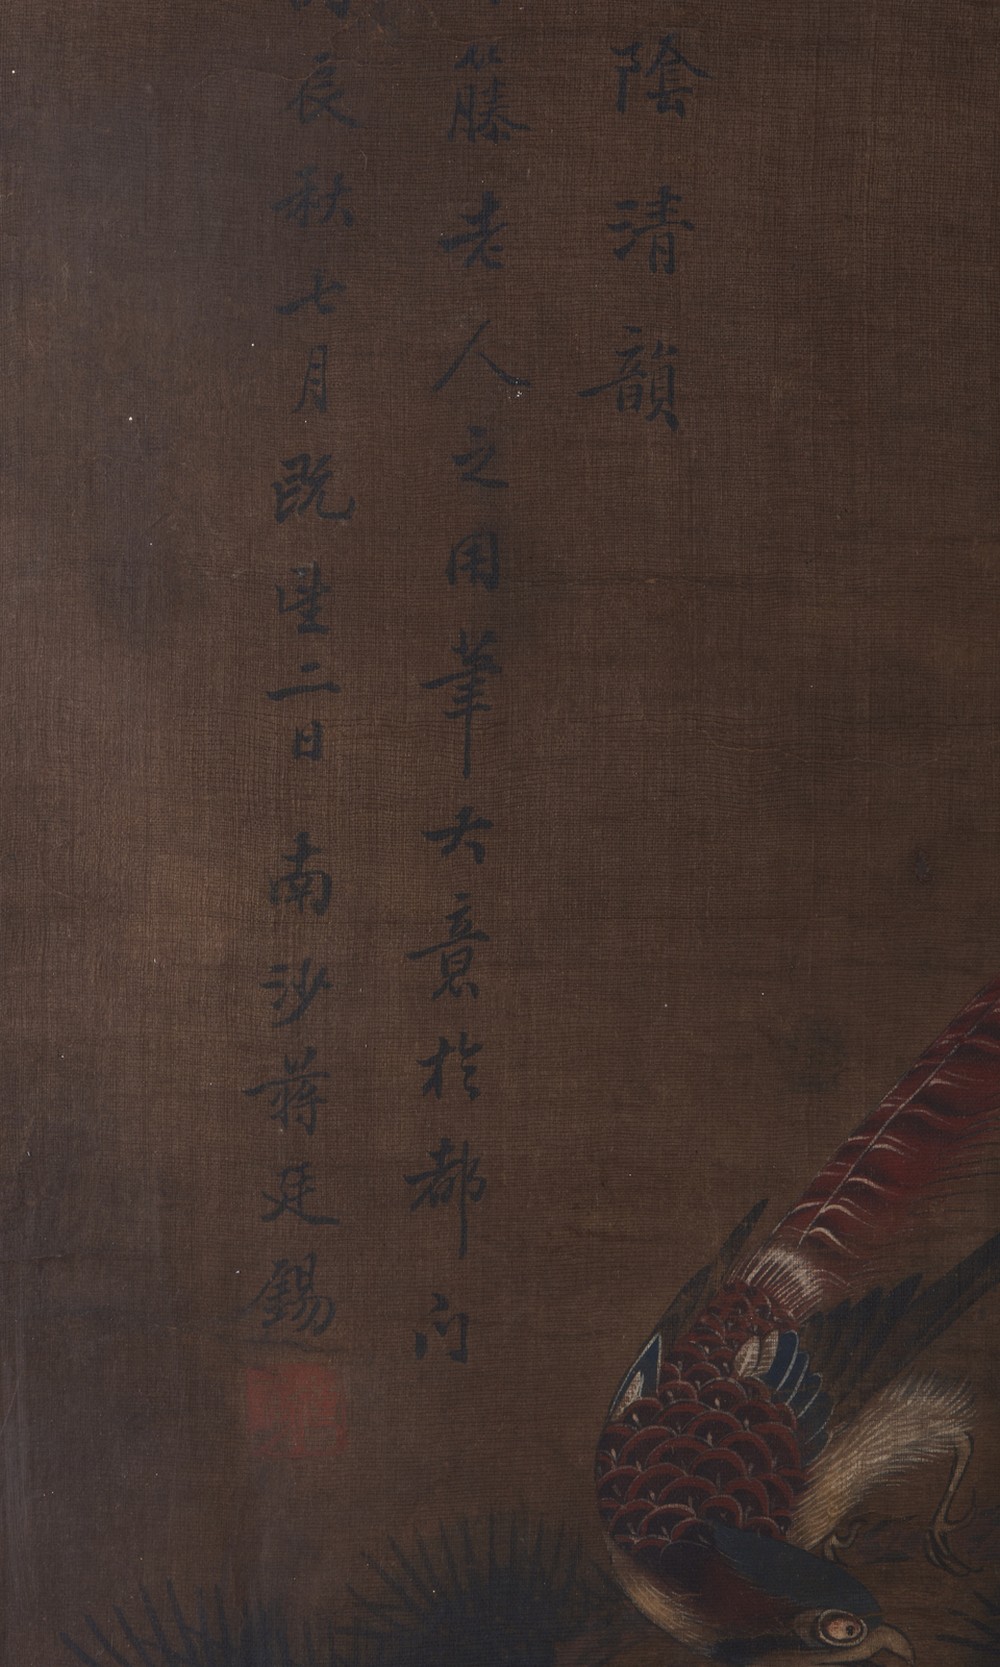 陰清韻
籐老人之用筆大意於都门
辰秋七月既望二日 南沙蒋廷錫